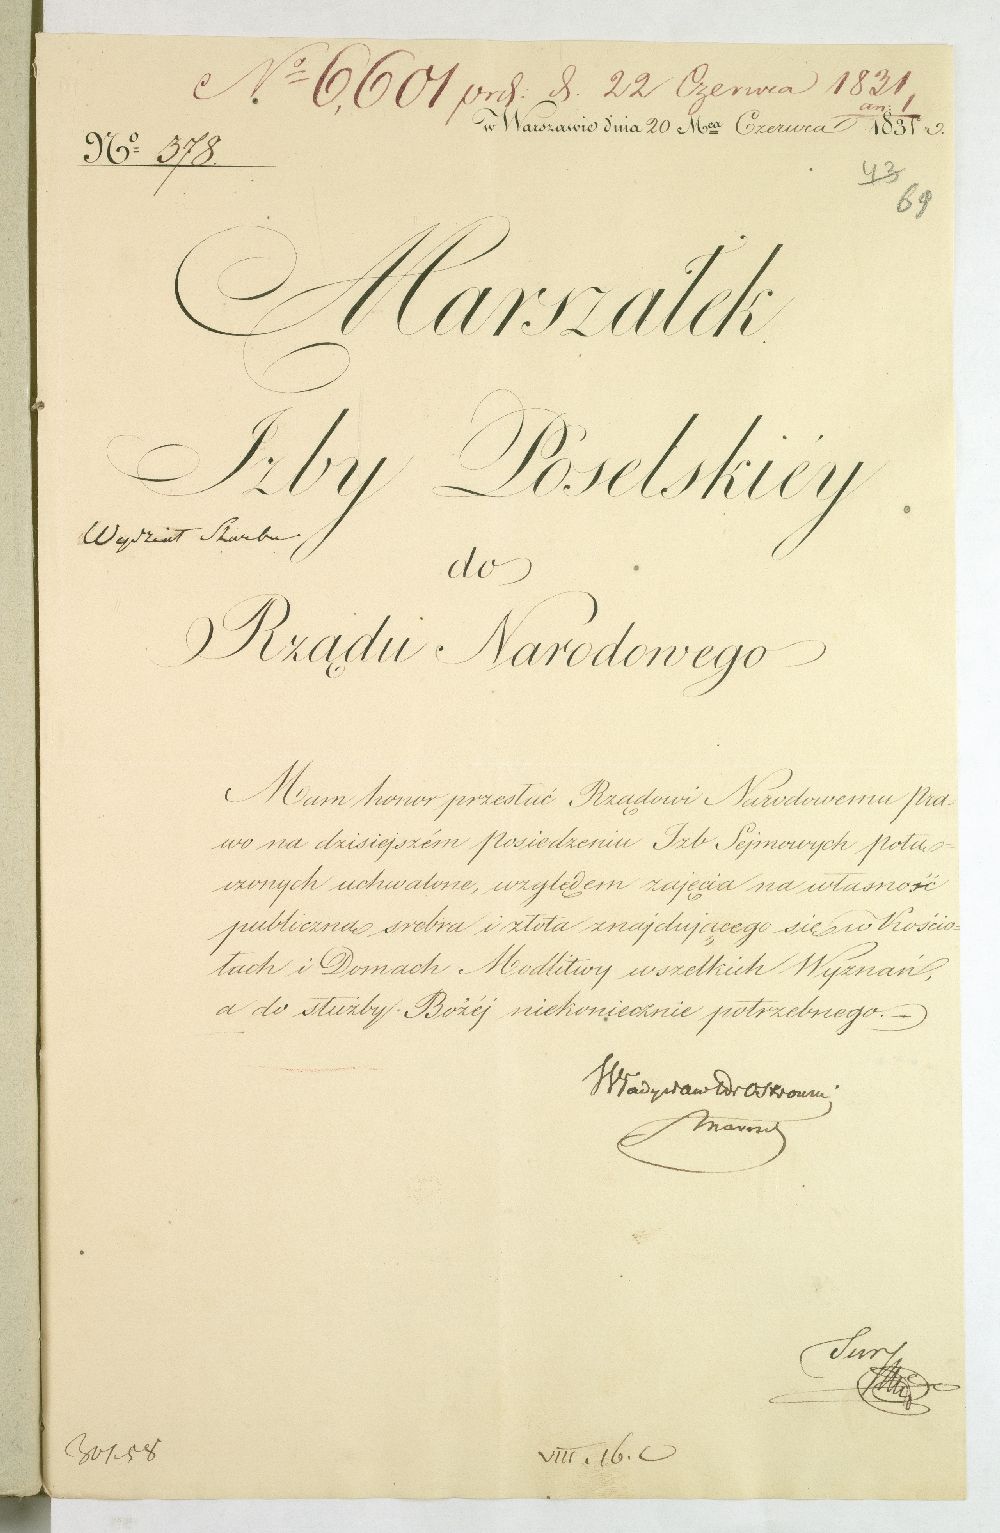 No 6,601 prd. d. 22 Czerwca 1831
an: 1
w Warszawie dnia 20 Mca Czerwca 1831 r.
No 378.
43
69
Marszałek
Izby Poselskiéy
Wydział Skarbu
do
Rządu Narodowego
Mam honor przesłać Rządowi Narodowemu pra-
wo na dzisiejszém posiedzeniu Izb Sejmowych połą-
czonych uchwalone, względem zajęcia na własność
publiczną srebra i złota znajdującego się w Kościo-
łach i Domach Modlitwy wszelkich Wyznań,
a do służby Bożéj niekoniecznie potrzebnego. –
Władysław Hr Ostrowski
Marsz
301.58
VIII. 16. C